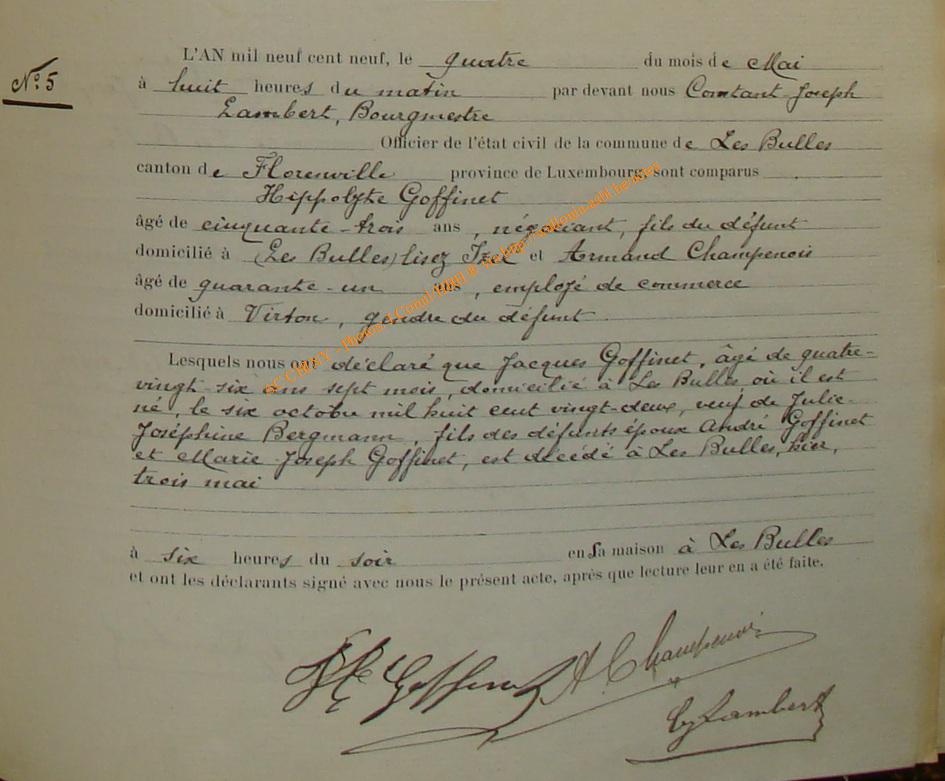 N° 5
L'AN mil neuf cent neuf, le quatre du mois de Mai
à huit heures du matin par devant nous Constant-Joseph
Lambert, Bourgmestre
Officier de l'état civil de la commune de Les Bulles
canton de Florenville province de Luxembourg, sont comparus
Hippolyte Goffinet
âgé de cinquante-trois ans, négociant, fils du défunt
domicilié à (Les Bulles) lisez Izel et Armand Champenois
âgé de quarante-un ans, employé de commerce
domicilié à Virton, gendre du défunt
Lesquels nous ont déclaré que Jacques Goffinet, âgé de quatre-
vingt-six ans sept mois, domicilié à Les Bulles, où il est
né, le six octobre mil huit cent vingt-deux, veuf de Julie-
Joséphine Bergmann, fils des défunts époux André Goffinet
et Marie-Joseph Goffinet, est décédé à Les Bulles, hier,
trois mai
à six heures du soir en sa maison à Les Bulles
et ont les déclarants signé avec nous le présent acte, après que lecture leur en a été faite.
Goffinet A Champenois
Lambert